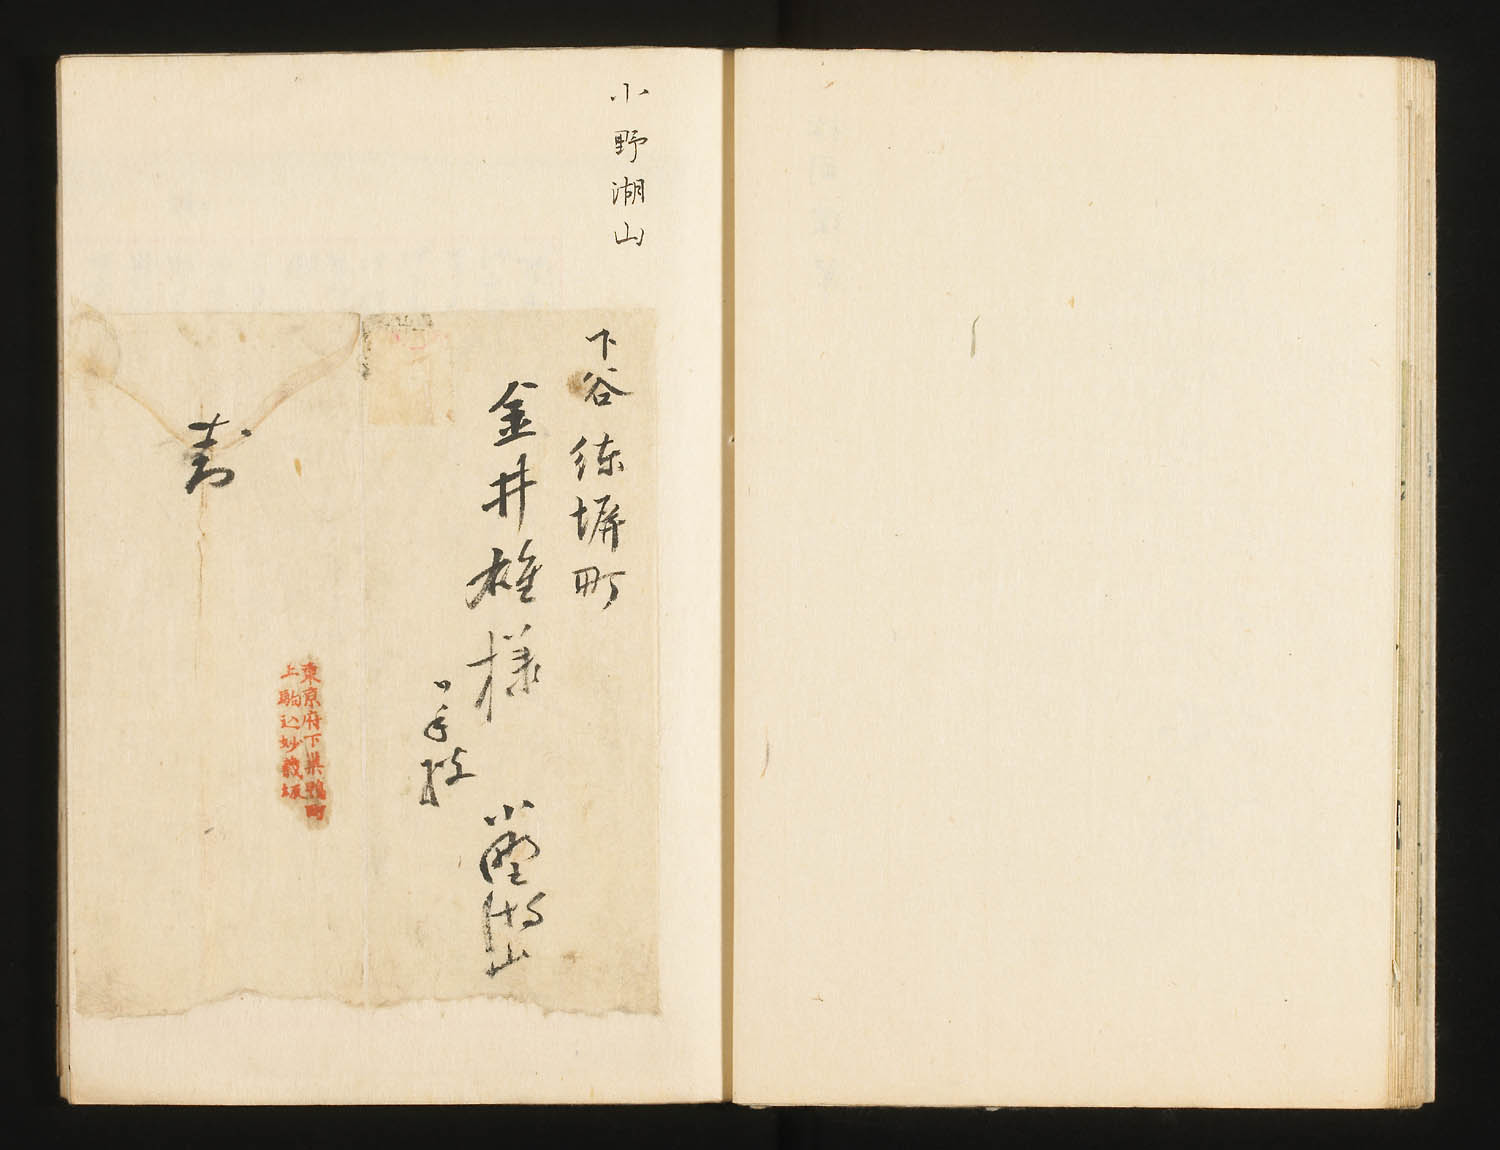 小野湖山
下谷練塀町
金井雄様
小野湖山
東京府下巣鴨町
上駒込妙義坂